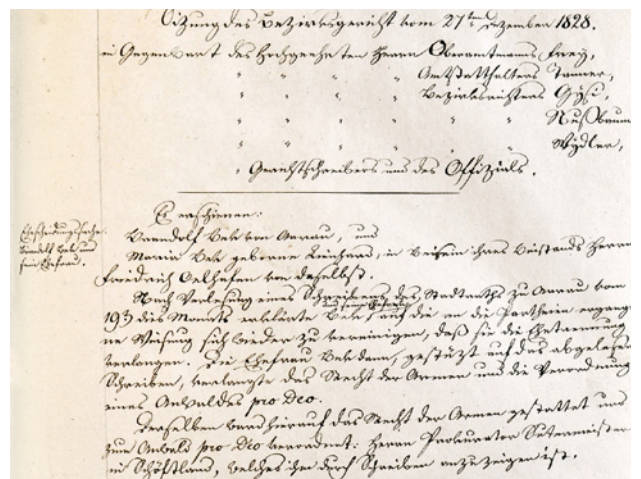 Sitzung des Bezirksgericht vom 27ten Dezember 1828.
in Gegenwart des Hochgeehrten Herrn Oberamtmanns Frey,
" " " " Amtsstatthalters Tanner,
" " " " Bezirksrichters Gysi,
" " " " " Nußbaum
" " " " " Wydler,
" Gerichtschreibers und des Offizials.
Es erschienen:
Ehescheidungssache.
Beck von Aarau, und
Maria Beck geborne Leinhaas, in Beisein ihres Beistands Herrn
Friedrich Oelhafen von daselbst.
Nach Verlesung eines Schreibens des Stadtraths zu Aarau vom
19t dies Monats erklärte Beck und seine Ehefrau auf die an die Partheien ergange
ne Weisung sich wieder zu vereinigen, daß sie die Ehetrennung
verlangen. Die Ehefrau Beck dann, gestüzt auf das abgelesene
Schreiben, verlangte das Recht der Armen und die Verordnung
eines Anwaldes pro Deo.
Derselben ward hierauf das Recht der Armen gestattet und
zum Anwald pro Deo verordnet: Herrn Prokurator Sutermeister
in Schöftland, welches ihm durch Schreiben anzuzeigen ist.